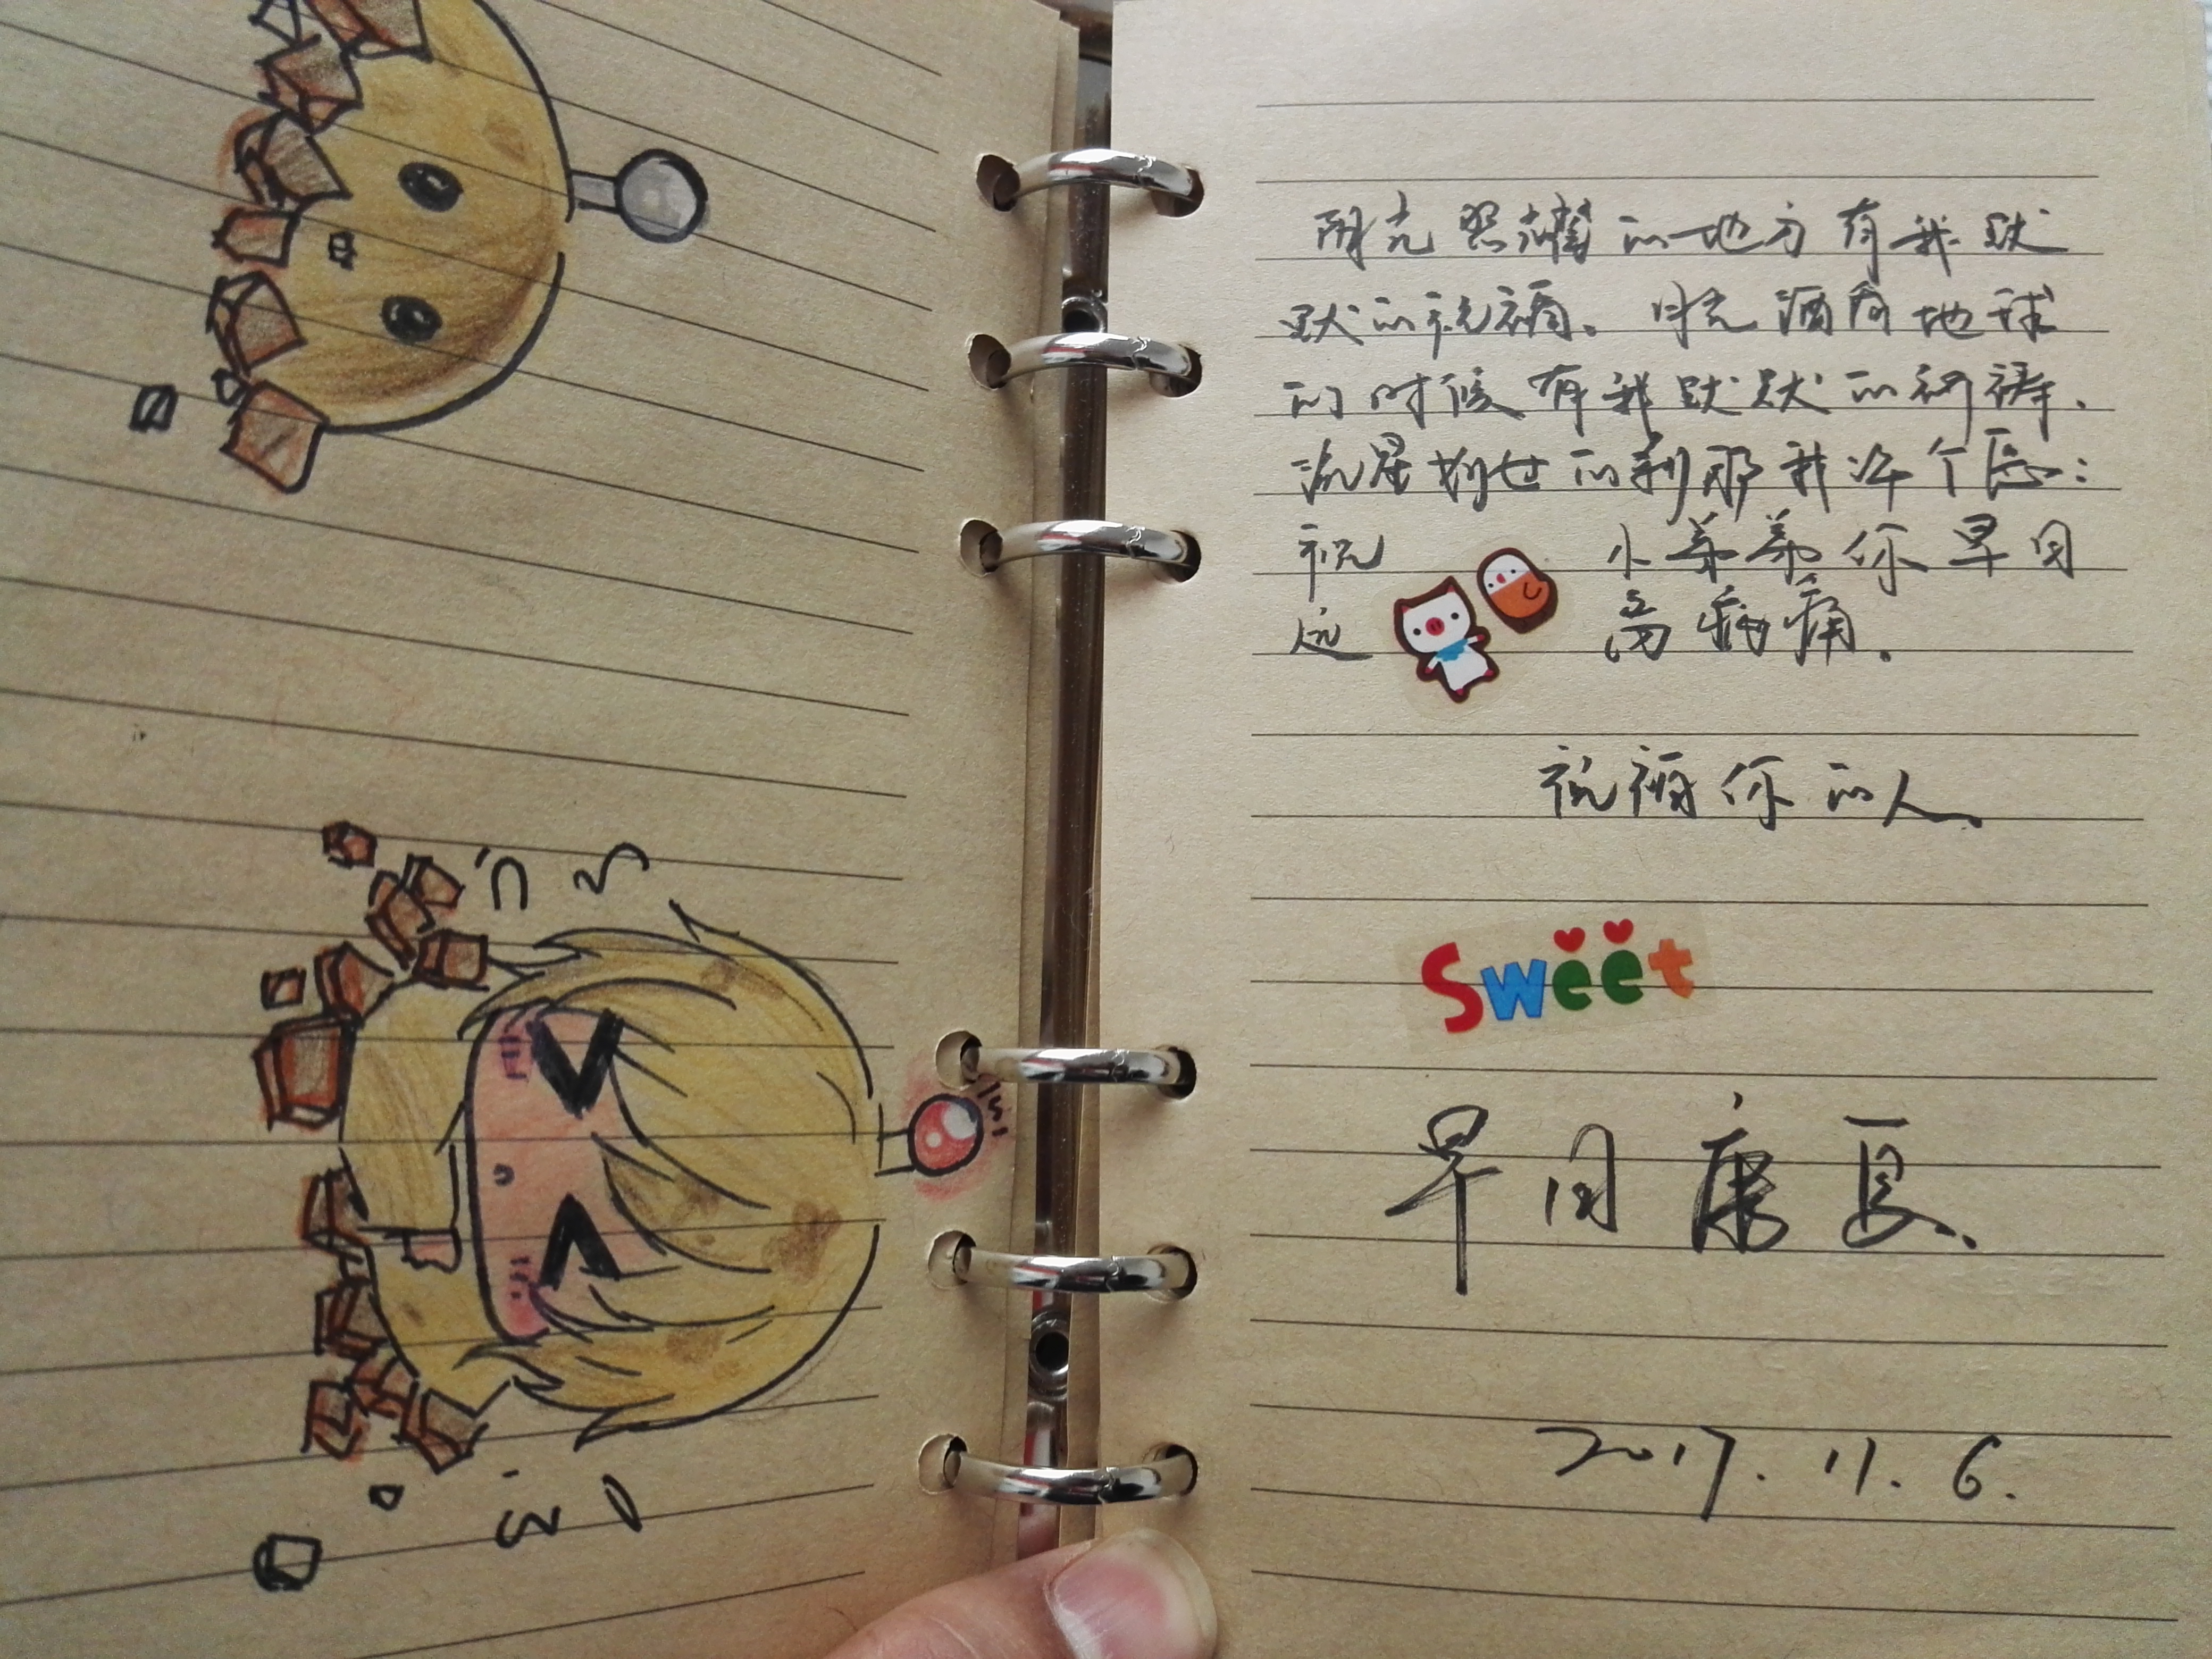 阳光照耀的地方有我默
默的祝福。月光洒向地球
的时候有我默默的祈祷.
流星划过的刹那我许个愿:
祝 小弟弟你早日
远离病痛.
祝福你的人.
Sweet
早日康复.
2017.11.6.